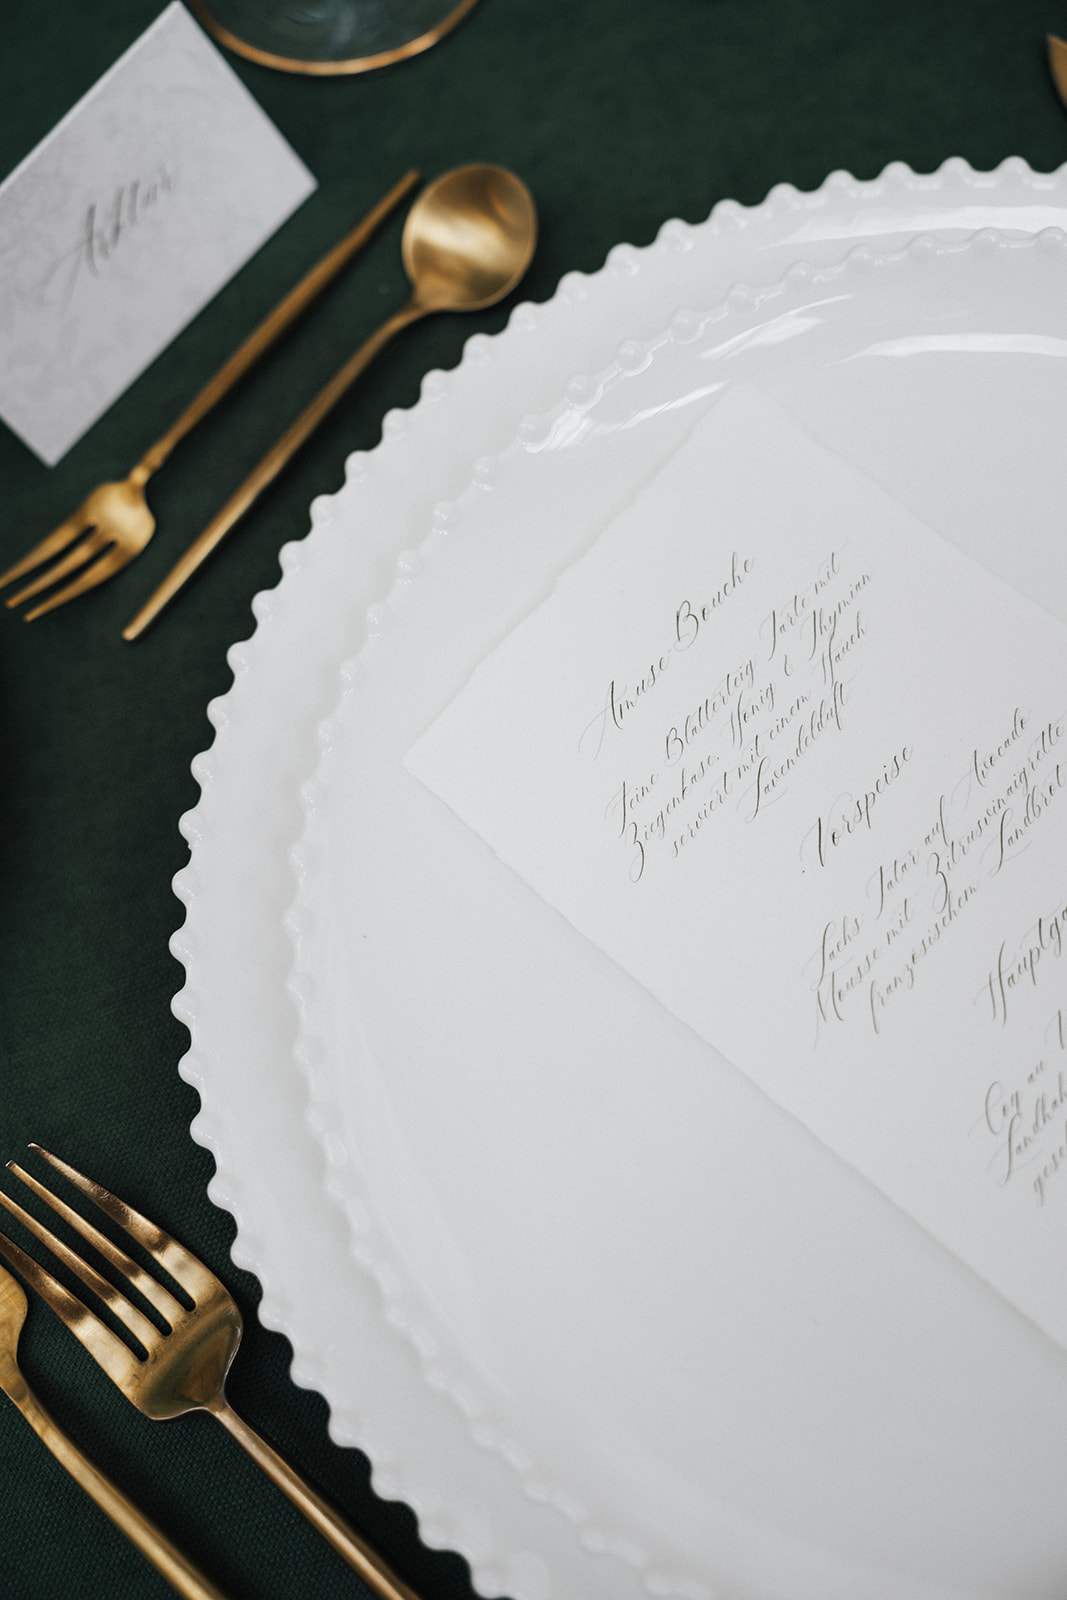 Amuse-Bouche
Feine Blätterteig Tarte mit
Ziegenkäse, Honig & Thymian
serviert mit einem Hauch
Lavendelduft
Vorspeise
Lachs Tatar auf Avocado
Mousse mit Zitrusvinaigrette
französischem Landbrot
Hauptga
Coq au V
Landhäh
gesc